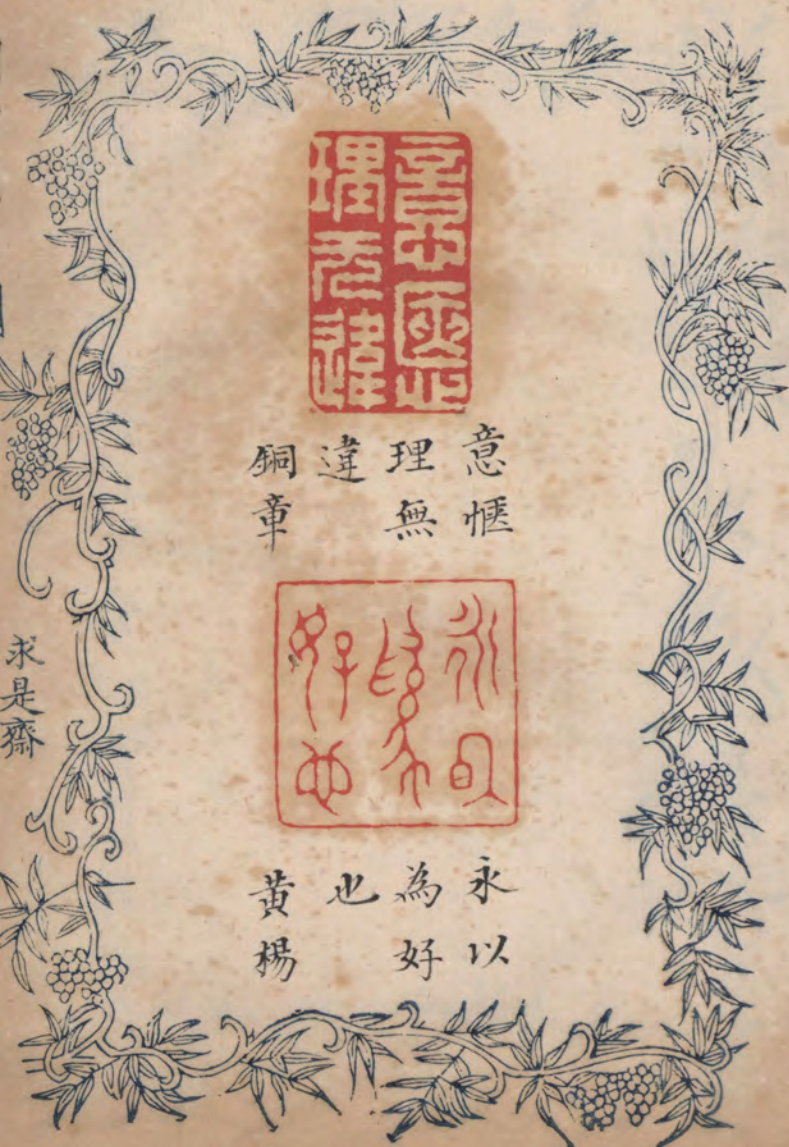 意愜
理无違
意愜
理無
違
銅章
永㠯
為
好也
永以
為好
也
黃楊
求是齋